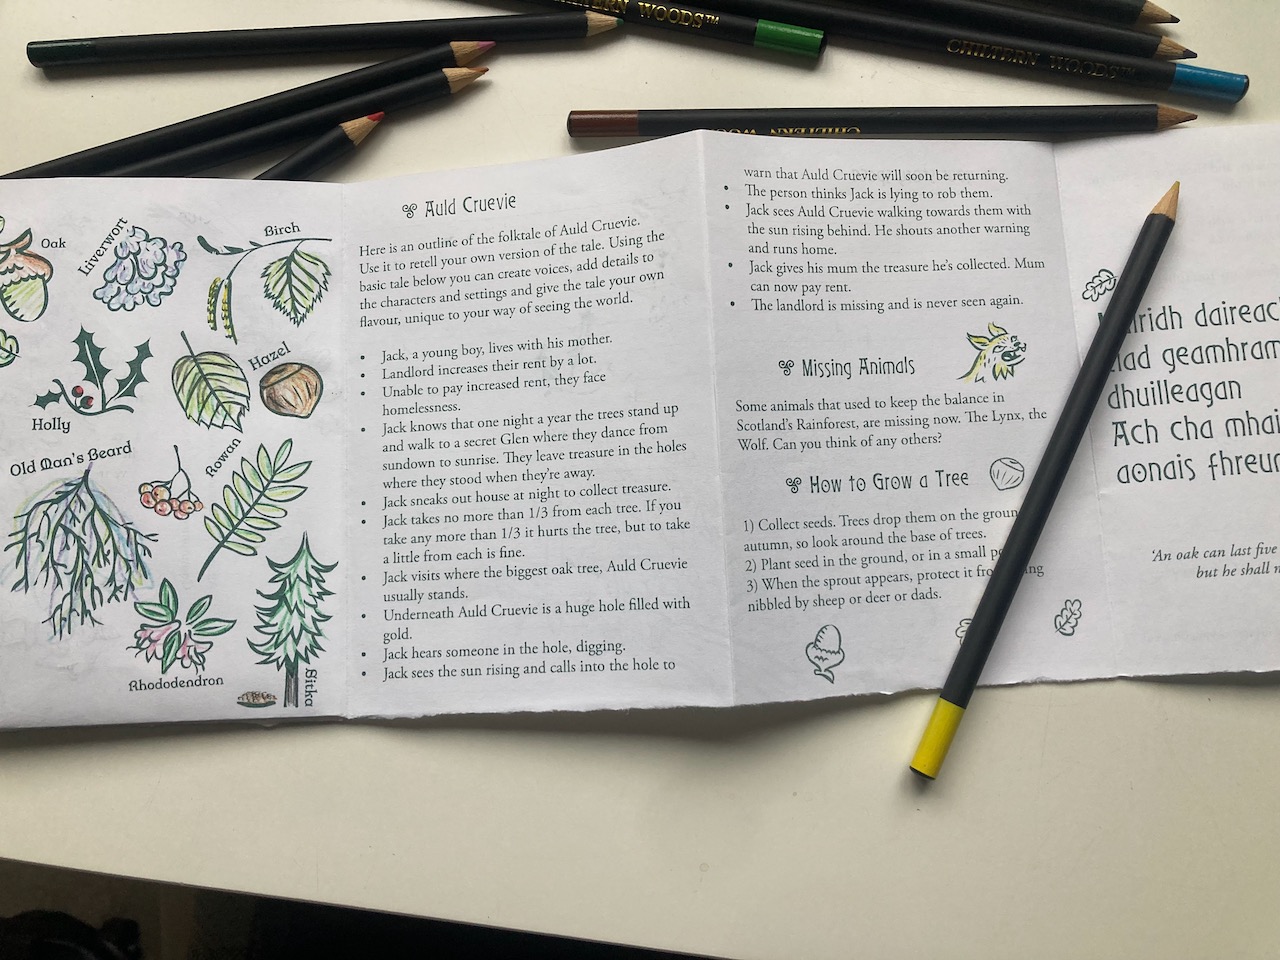 CHILTERN WOODS™
CHILTERN WOODS™
CHILTERN
Oak
Liverwort
Birch
Holly
Hazel
Old Man's Beard
Rowan
Rhododendron
Sitka
Auld Cruevie
Here is an outline of the folktale of Auld Cruevie.
Use it to retell your own version of the tale. Using the
basic tale below you can create voices, add details to
the characters and settings and give the tale your own
flavour, unique to your way of seeing the world.
• Jack, a young boy, lives with his mother.
• Landlord increases their rent by a lot.
• Unable to pay increased rent, they face
homelessness.
• Jack knows that one night a year the trees stand up
and walk to a secret Glen where they dance from
sundown to sunrise. They leave treasure in the holes
where they stood when they're away.
• Jack sneaks out house at night to collect treasure.
• Jack takes no more than 1/3 from each tree. If you
take any more than 1/3 it hurts the tree, but to take
a little from each is fine.
• Jack visits where the biggest oak tree, Auld Cruevie
usually stands.
• Underneath Auld Cruevie is a huge hole filled with
gold.
• Jack hears someone in the hole, digging.
• Jack sees the sun rising and calls into the hole to
warn that Auld Cruevie will soon be returning.
• The person thinks Jack is lying to rob them.
• Jack sees Auld Cruevie walking towards them with
the sun rising behind. He shouts another warning
and runs home.
• Jack gives his mum the treasure he's collected. Mum
can now pay rent.
• The landlord is missing and is never seen again.
Missing Animals
Some animals that used to keep the balance in
Scotland's Rainforest, are missing now. The Lynx, the
Wolf. Can you think of any others?
How to Grow a Tree
1) Collect seeds. Trees drop them on the
autumn, so look around the base of trees.
2) Plant seed in the ground, or in a small
3) When the sprout appears, protect it
nibbled by sheep or deer or dads.
geamhram
dhuilleagan
Ach cha
aonais
'An oak can last five
but he shall